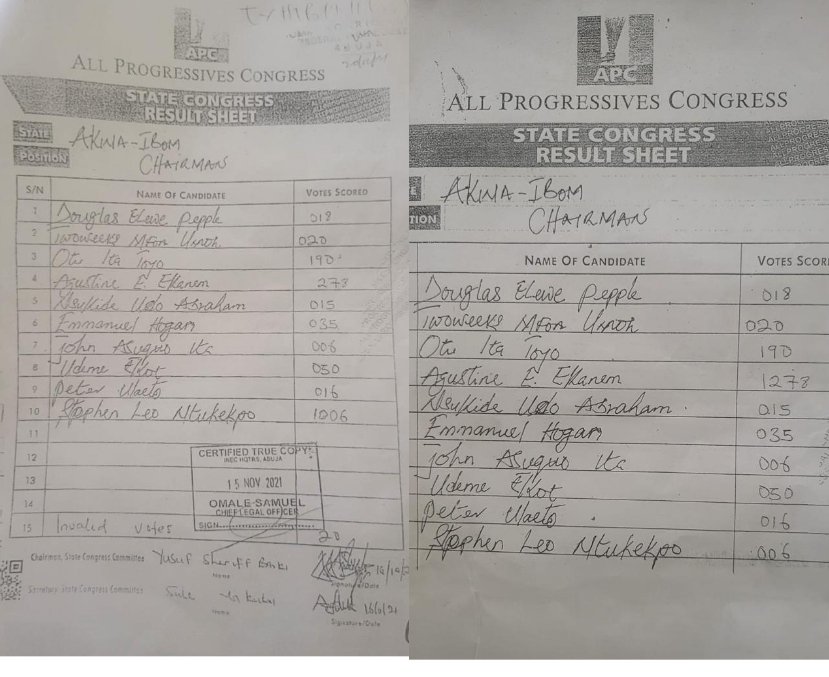 APC
ALL PROGRESSIVES CONGRESS
STATE CONGRESS
RESULT SHEET
STATE AKWA-IBOM
POSITION CHAIRMAN
S/N NAME OF CANDIDATE VOTES SCORED
1 Douglas Elewe Pepple 018
2 Twoweeks Mfon 020
3 Otu Ita Toyo 190
4 Agustine E. Ekanem 278
5 Nsukide Udo Abraham 015
6 Emmanuel Hogan 035
7 John Asuquo Ita 006
8 Udeme Ekot 050
9 Peter 016
10 Stephen Leo Ntukekpo 1006
11
12
13
14
15 Invalid votes 20
CERTIFIED TRUE COPY
INEC HQTRS, ABUJA
15 NOV 2021
OMALE SAMUEL
CHIEF LEGAL OFFICER
SIGN
Chairman, State Congress Committee Yusuf Sheriff
Name Signature/Date
Secretary, State Congress Committee
Name Signature/Date
APC
ALL PROGRESSIVES CONGRESS
STATE CONGRESS
RESULT SHEET
E AKWA-IBOM
TION CHAIRMAN
NAME OF CANDIDATE VOTES SCOR
Douglas Elewe Pepple 018
Twoweeks Mfon 020
Otu Ita Toyo 190
Agustine E. Ekanem 1278
Nsukide Udo Abraham 015
Emmanuel Hogan 035
John Asuquo Ita 006
Udeme Ekot 050
Peter 016
Stephen Leo Ntukekpo 006